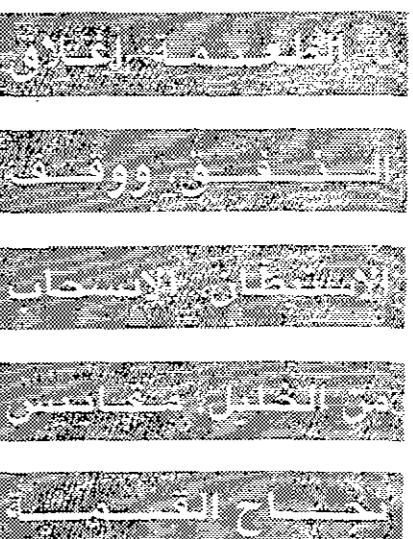 القمة: إغلاق
النفق ووقف
الاستيطان، الانسحاب
من الخليل مقاييس
نجاح القمة